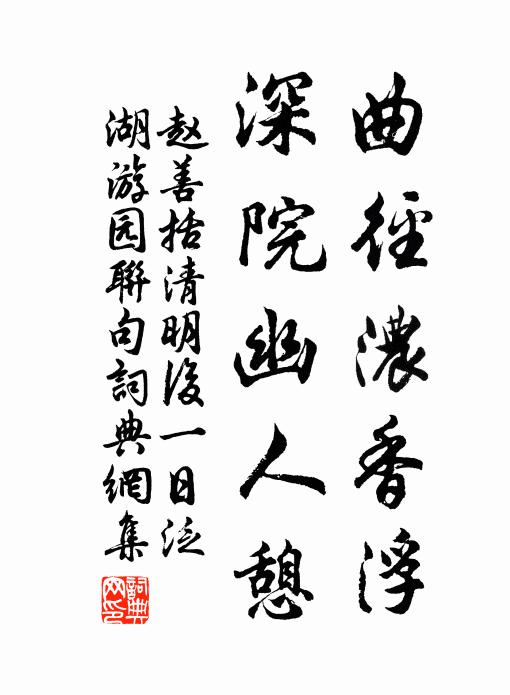 曲徑濃香浮
深院幽人憩
赵善括清明後一日泛
湖游园聯句詞典網集
詞典
网印